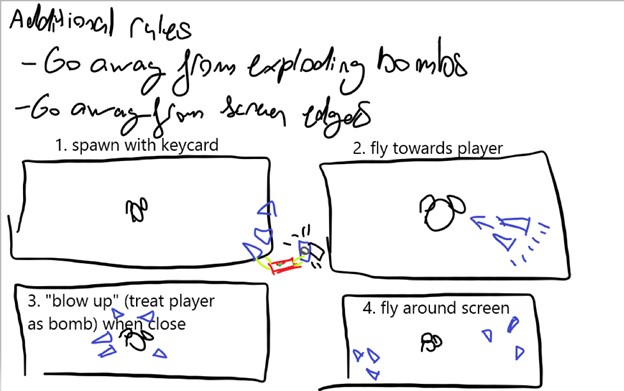 Additional rules
- Go away from exploding bombs
- Go away from screen edges
1. spawn with keycard
2. fly towards player
3. "blow up" (treat player
as bomb) when close
4. fly around screen